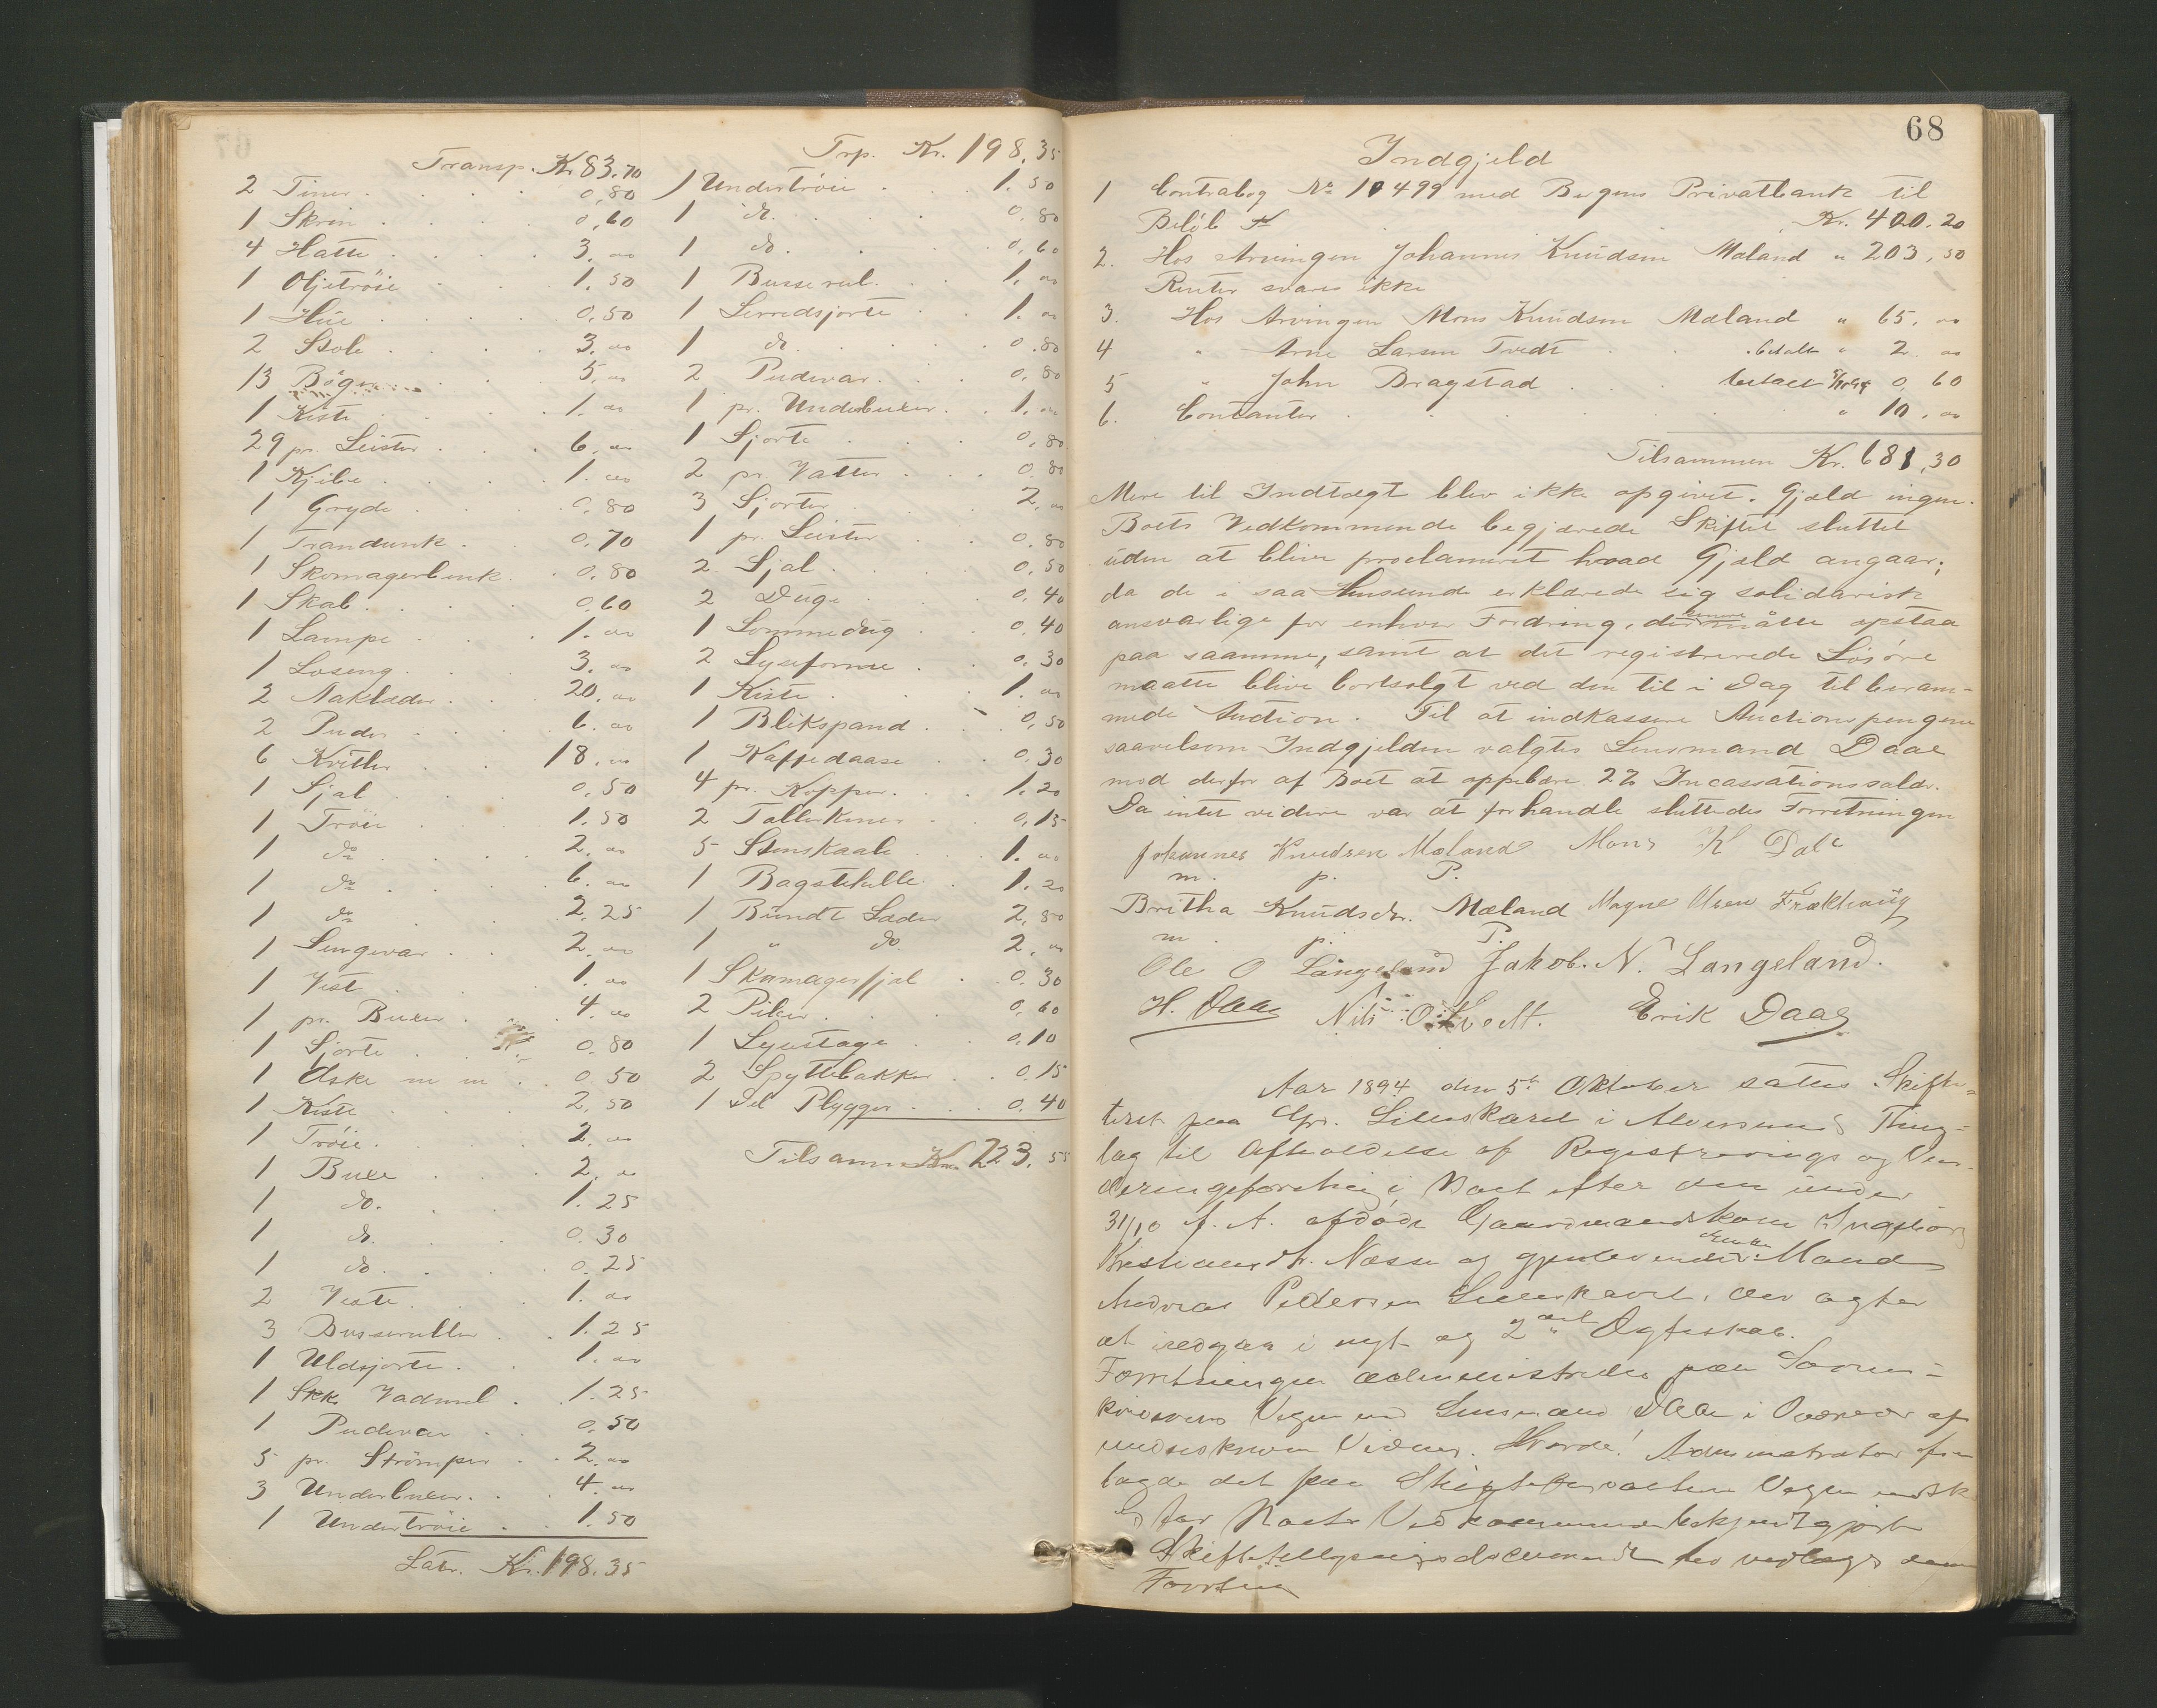 Transp. Kr 83.70
2 Tiner . . . 0,80
1 Skrin . . . 0,60
4 Hatte . . . 3. 00
1 Oljetröie . 1. 50
1 Hüe . . . 0. 50
2 Stole . . . 3. 00
13 Böger . . . 5. 00
1 Kiste . . . 1. 00
29 pr. Leister . . . 6. 00
1 Kjibe . . . 1. 00
1 Gryde . . . 0. 80
1 Trandunk . 0. 70
1 Skomagerbenk . 0. 80
1 Skab . . . 0. 60
1 Lampe . . . 1. 00
1 Loseng . . . 3. 00
2 Naklæder . . 20. 00
2 Puder . . . 6. 00
6 Kvitler . . 18. 00
1 Sjal . . . 0. 50
1 Tröie . . . 1. 50
1 do . . . 2. 00
1 do . . . 6. 00
1 do . . . 2. 25
1 Sengevar . . 2. 00
1 Vest . . . 1. 00
1 pr. Buxer . . 4. 00
1 Sjorte . . . 0. 80
1 Æske m m . . 0. 50
1 Kiste . . . 2. 50
1 Tröie . . . 2. 00
1 Buxe . . . 2. 00
1 do. . . . 1. 25
1 do. . . . 0. 30
1 do. . . . 0. 25
2 Veste . . . 1. 00
3 Busseruller . . 1. 25
1 Uldsjorte . . 1. 00
1 Stkk Vadmel . . 1. 25
1 Pudevar . . 0. 50
5 pr. Strömper . . 2. 00
3 Underbuxer . . 4. 00
1 Undertröie . . 1. 50
Latr. Kr. 198. 35
Trp. Kr. 198. 35
1 Undertröie . . . 1. 50
1 do. . . . 0. 80
1 do. . . . 0. 60
1 Busserul . . 1. 00
1 Lerredsjorte . . 1. 00
1 do. . . . 0. 80
2 Pudevar . . . 0. 80
1 pr. Underbuxer . . 1. 00
1 Sjorte . . . 0. 80
2 pr. Vatter . . . 0. 80
3 Sjorter . . . 2. 00
1 pr. Leister . . 0. 80
2 Sjal . . . 0. 50
2 Duge . . . 0. 40
1 Lommedüg . . 0. 40
2 Lyseforme . . 0. 30
1 Kiste . . . 1. 00
1 Blikspand . . 0. 50
1 Kaffedaase . . 0. 30
4 pr. Kopper . . 1. 20
2 Tallerkener . . 0. 15
5 Stenskaale . . 1. 00
1 Bagstefille . . 1. 20
1 Bündt Læder . 2. 80
1 " do 2. 00
1 Skomagerfjal . 0. 30
2 Piber . . . 0. 60
1 Lysestage . . 0. 10
2 Spyttebakker . . 0. 15
1 Del Plygger . . . 0. 40
Tilsammen Kr. 223. 55
68
Indgjeld
1 Contrabog No 10499 med Bergens Privatbank til
Belöb Kr. 400. 20
2. Hos Arvingen Johannes Knüdsen Moland " 203, 50
Renter svares ikke
3. Hos Arvingen Mons Knüdsen Mæland " 65. 00
4 " Arne Larsen Tvedt . . betalt " 2. 00
5 " John Bragstad . . . betalt 0. 60
6. Contanter . . . " 10. 00
Tilsammen Kr. 681, 30
Mere til Indtægt blev ikke opgivet. Gjæld ingen.
Boets Vedkommende begjærede Skiftet sluttet
üden at blive proclameret hvad Gjæld angaar;
da de i saa Henseende erklærede sig solidarisk
ansvarlige for enhver Fordring, der senere måtte opstaa
paa saamme, samt at det registrerede Lösöre
maatte blive bortsolgt ved den til i Dag til beram-
mede Auction. Til at indkassere Auctionspengene
saavelsom Indgjelden valgtes Lensmand Daae
mod derfor af Boet at oppebære 2 % Incassationssalær.
Da intet videre var at forhandle sluttedes Forretningen
Johannes Knudsen Moland Mons K Dale
m. p. P.
Britha Knüdsdr. Mæland Magne Olsen
m. p. P.
Ole O Langeland Jakob. N. Langeland.
H. Daae Nils O. Tvedt. Erik Daae
Aar 1894 den 5te Oktober sattes Skifte-
teret paa Gr. Lilleskaret i Alversund Thing-
lag til Afholdelse af Registrerings og Vur-
deringsforretning i Boet efter den ünder
31/10 f. A. afdöde Gaardmandskone Ingebör
Kristiansdtr. Næsse og gjenlevende Enke Mand
Andreas Pedersen Lilleskaret, der agter
at indgaa i nyt og 2det Ægteskab.
Forretningen administredes paa Soren-
skriverens Vegne ved Lensmand Daae i Overvær af
undeskrevne Vidner. Hvorda! Administrator frem
lagde det paa Skifteforvalterens Vegne
for Boets Vedkommende bekjendtgjorte
Skiftetillysningsdocument der vedlægges denne
Forretning